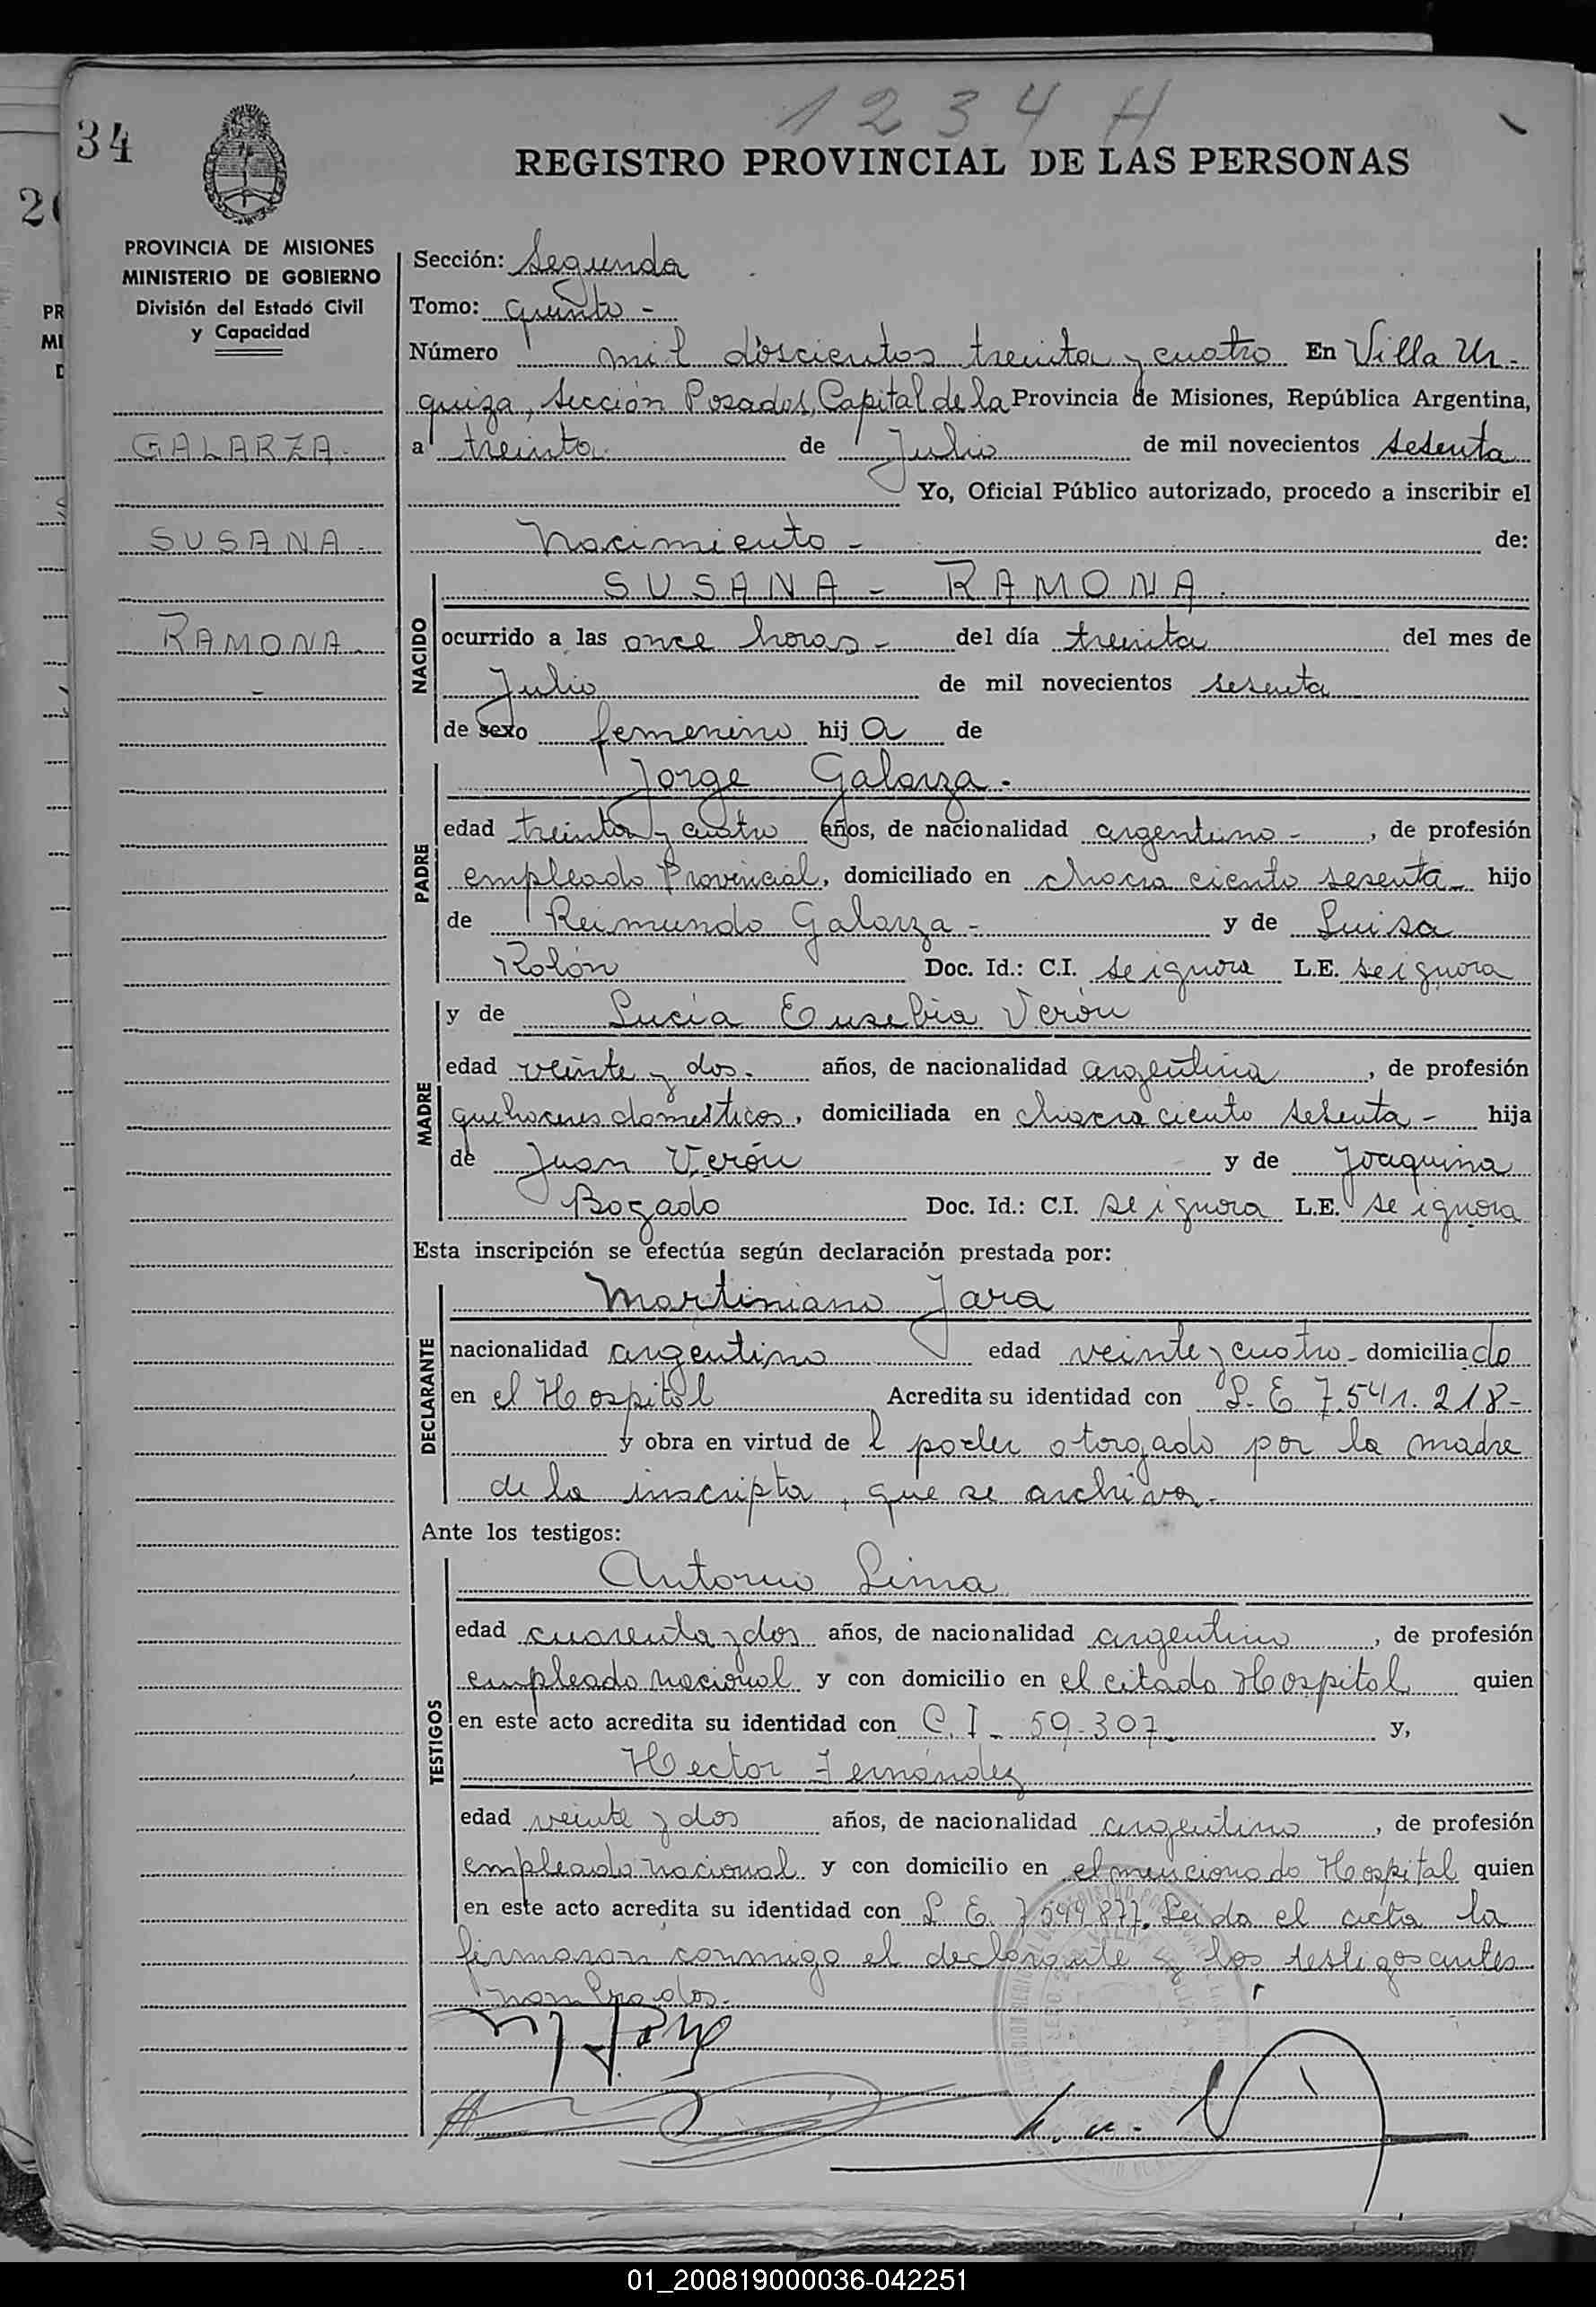 1234 H
34
REGISTRO PROVINCIAL DE LAS PERSONAS
PROVINCIA DE MISIONES
MINISTERIO DE GOBIERNO
División del Estado Civil
y Capacidad
GALARZA.
SUSANA.
RAMONA.
-
Sección: Segunda
Tomo: quinto -
Número mil doscientos treinta y cuatro En Villa Ur-
quiza, Sección Posadas, Capital de la Provincia de Misiones, República Argentina,
a treinta de Julio de mil novecientos sesenta
Yo, Oficial Público autorizado, procedo a inscribir el
Nacimiento - de:
NACIDO
SUSANA - RAMONA.
ocurrido a las once horas - del día treinta del mes de
Julio de mil novecientos sesenta
de sexo femenino hija de
PADRE
Jorge Galarza -
edad treinta y cuatro años, de nacionalidad argentino -, de profesión
empleado Provincial, domiciliado en chacra ciento sesenta - hijo
de Reimundo Galarza - y de Luisa
Rolón Doc. Id.: C.I. se ignora L.E. se ignora
MADRE
y de Lucía Eusebia Verón
edad veinte y dos. años, de nacionalidad argentina, de profesión
quehaceres domésticos, domiciliada en chacra ciento sesenta - hija
de Juan Verón y de Joaquina
Bogado Doc. Id.: C.I. se ignora L.E. se ignora
Esta inscripción se efectúa según declaración prestada por:
DECLARANTE
Martiniano Jara
nacionalidad argentino edad veinte y cuatro - domiciliado
en el Hospital Acredita su identidad con L. E 7.541.218-
y obra en virtud de l poder otorgado por la madre
de la inscripta, que se archiva.-
Ante los testigos:
TESTIGOS
Antonio Lima
edad cuarenta y dos años, de nacionalidad argentino, de profesión
empleado nacional y con domicilio en el citado Hospital quien
en este acto acredita su identidad con C.I - 59.307. y,
Hector Fernández
edad veinte y dos años, de nacionalidad argentino, de profesión
empleado nacional y con domicilio en el mencionado Hospital quien
en este acto acredita su identidad con L E. 7 599 877. Leida el acta la
firmaron conmigo el declarante y los testigos antes
nombrados.-
01_200819000036-042251